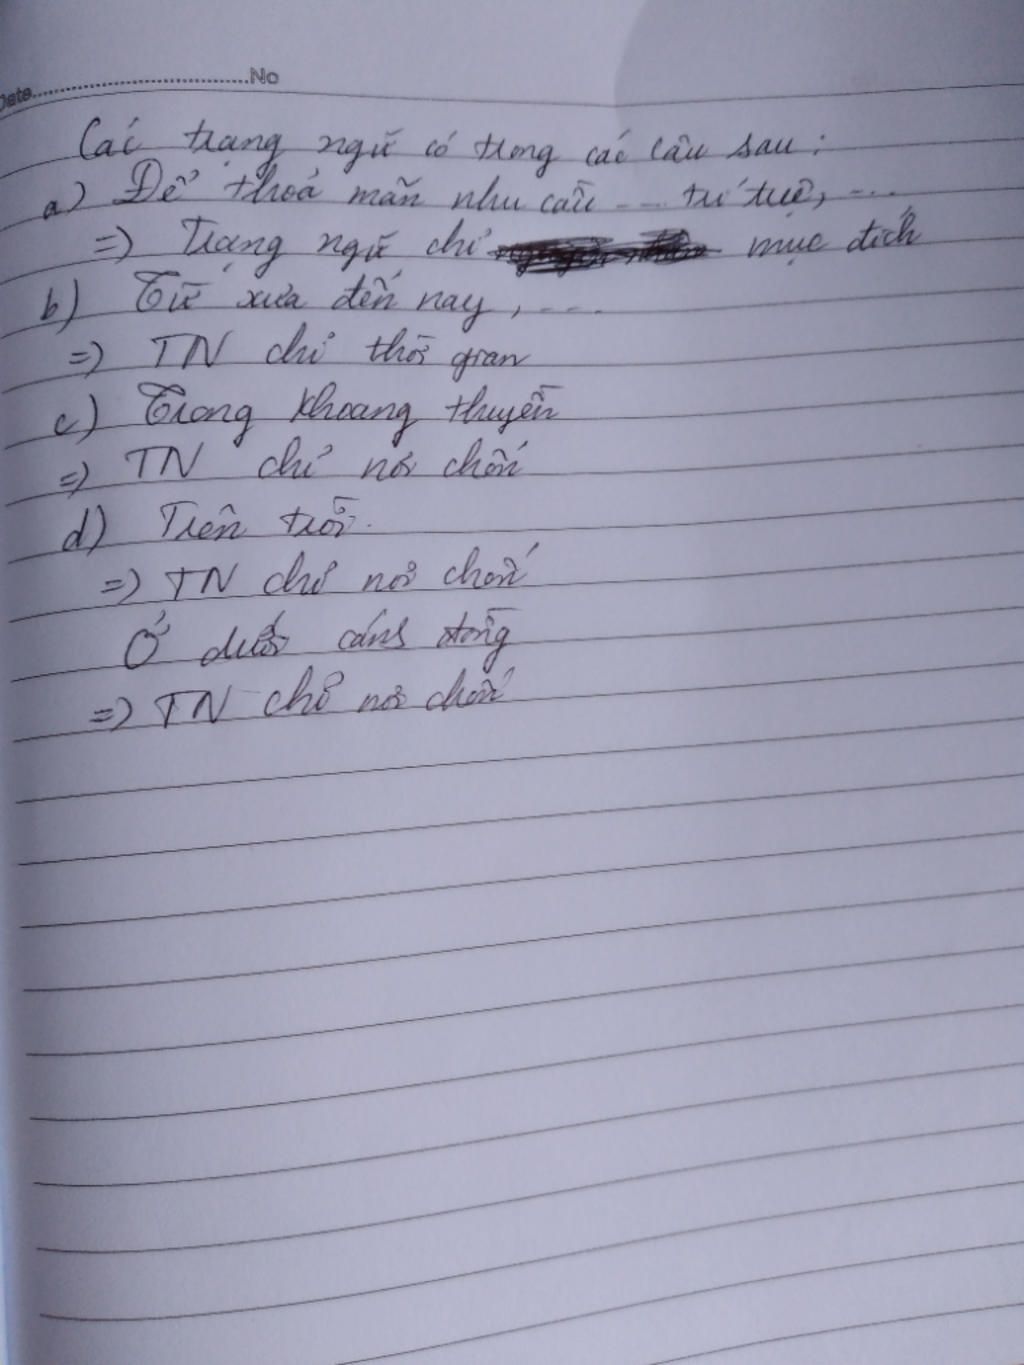 Date.....................................No
Các trạng ngữ có trong các câu sau:
a) Để thoả mãn nhu cầu --- trí tuệ, ---
=> Trạng ngữ chỉ mục đích
b) Từ xưa đến nay, ---
=> TN chỉ thời gian
c) Trong khoang thuyền
=> TN chỉ nơi chốn
d) Trên trời.
=> TN chỉ nơi chốn
Ở dưới cánh đồng
=> TN chỉ nơi chốn